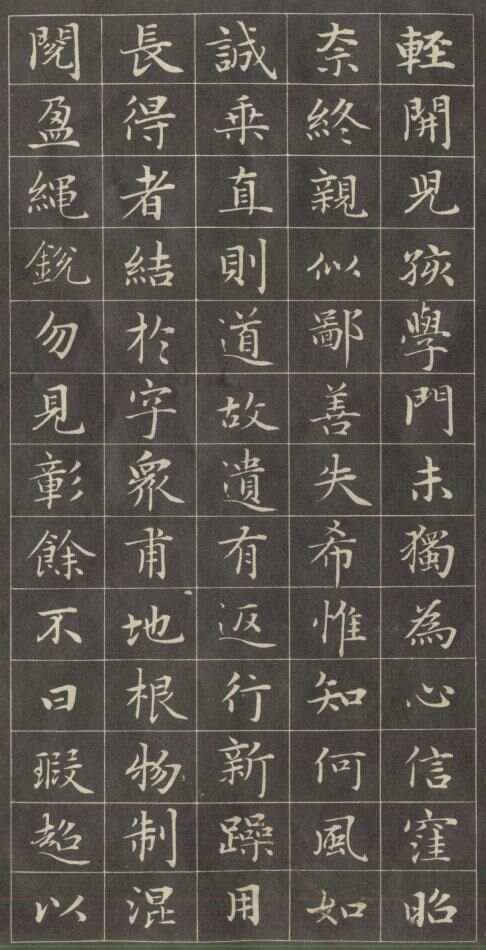 輕開兒孩學門未獨為心信窪昭
奈終親似鄙善失希惟知何風如
誠乗直則道故遺有返行新躁用
長得者結於字衆甫地根物制混
閱盈繩銳勿見彰餘不曰瑕超以